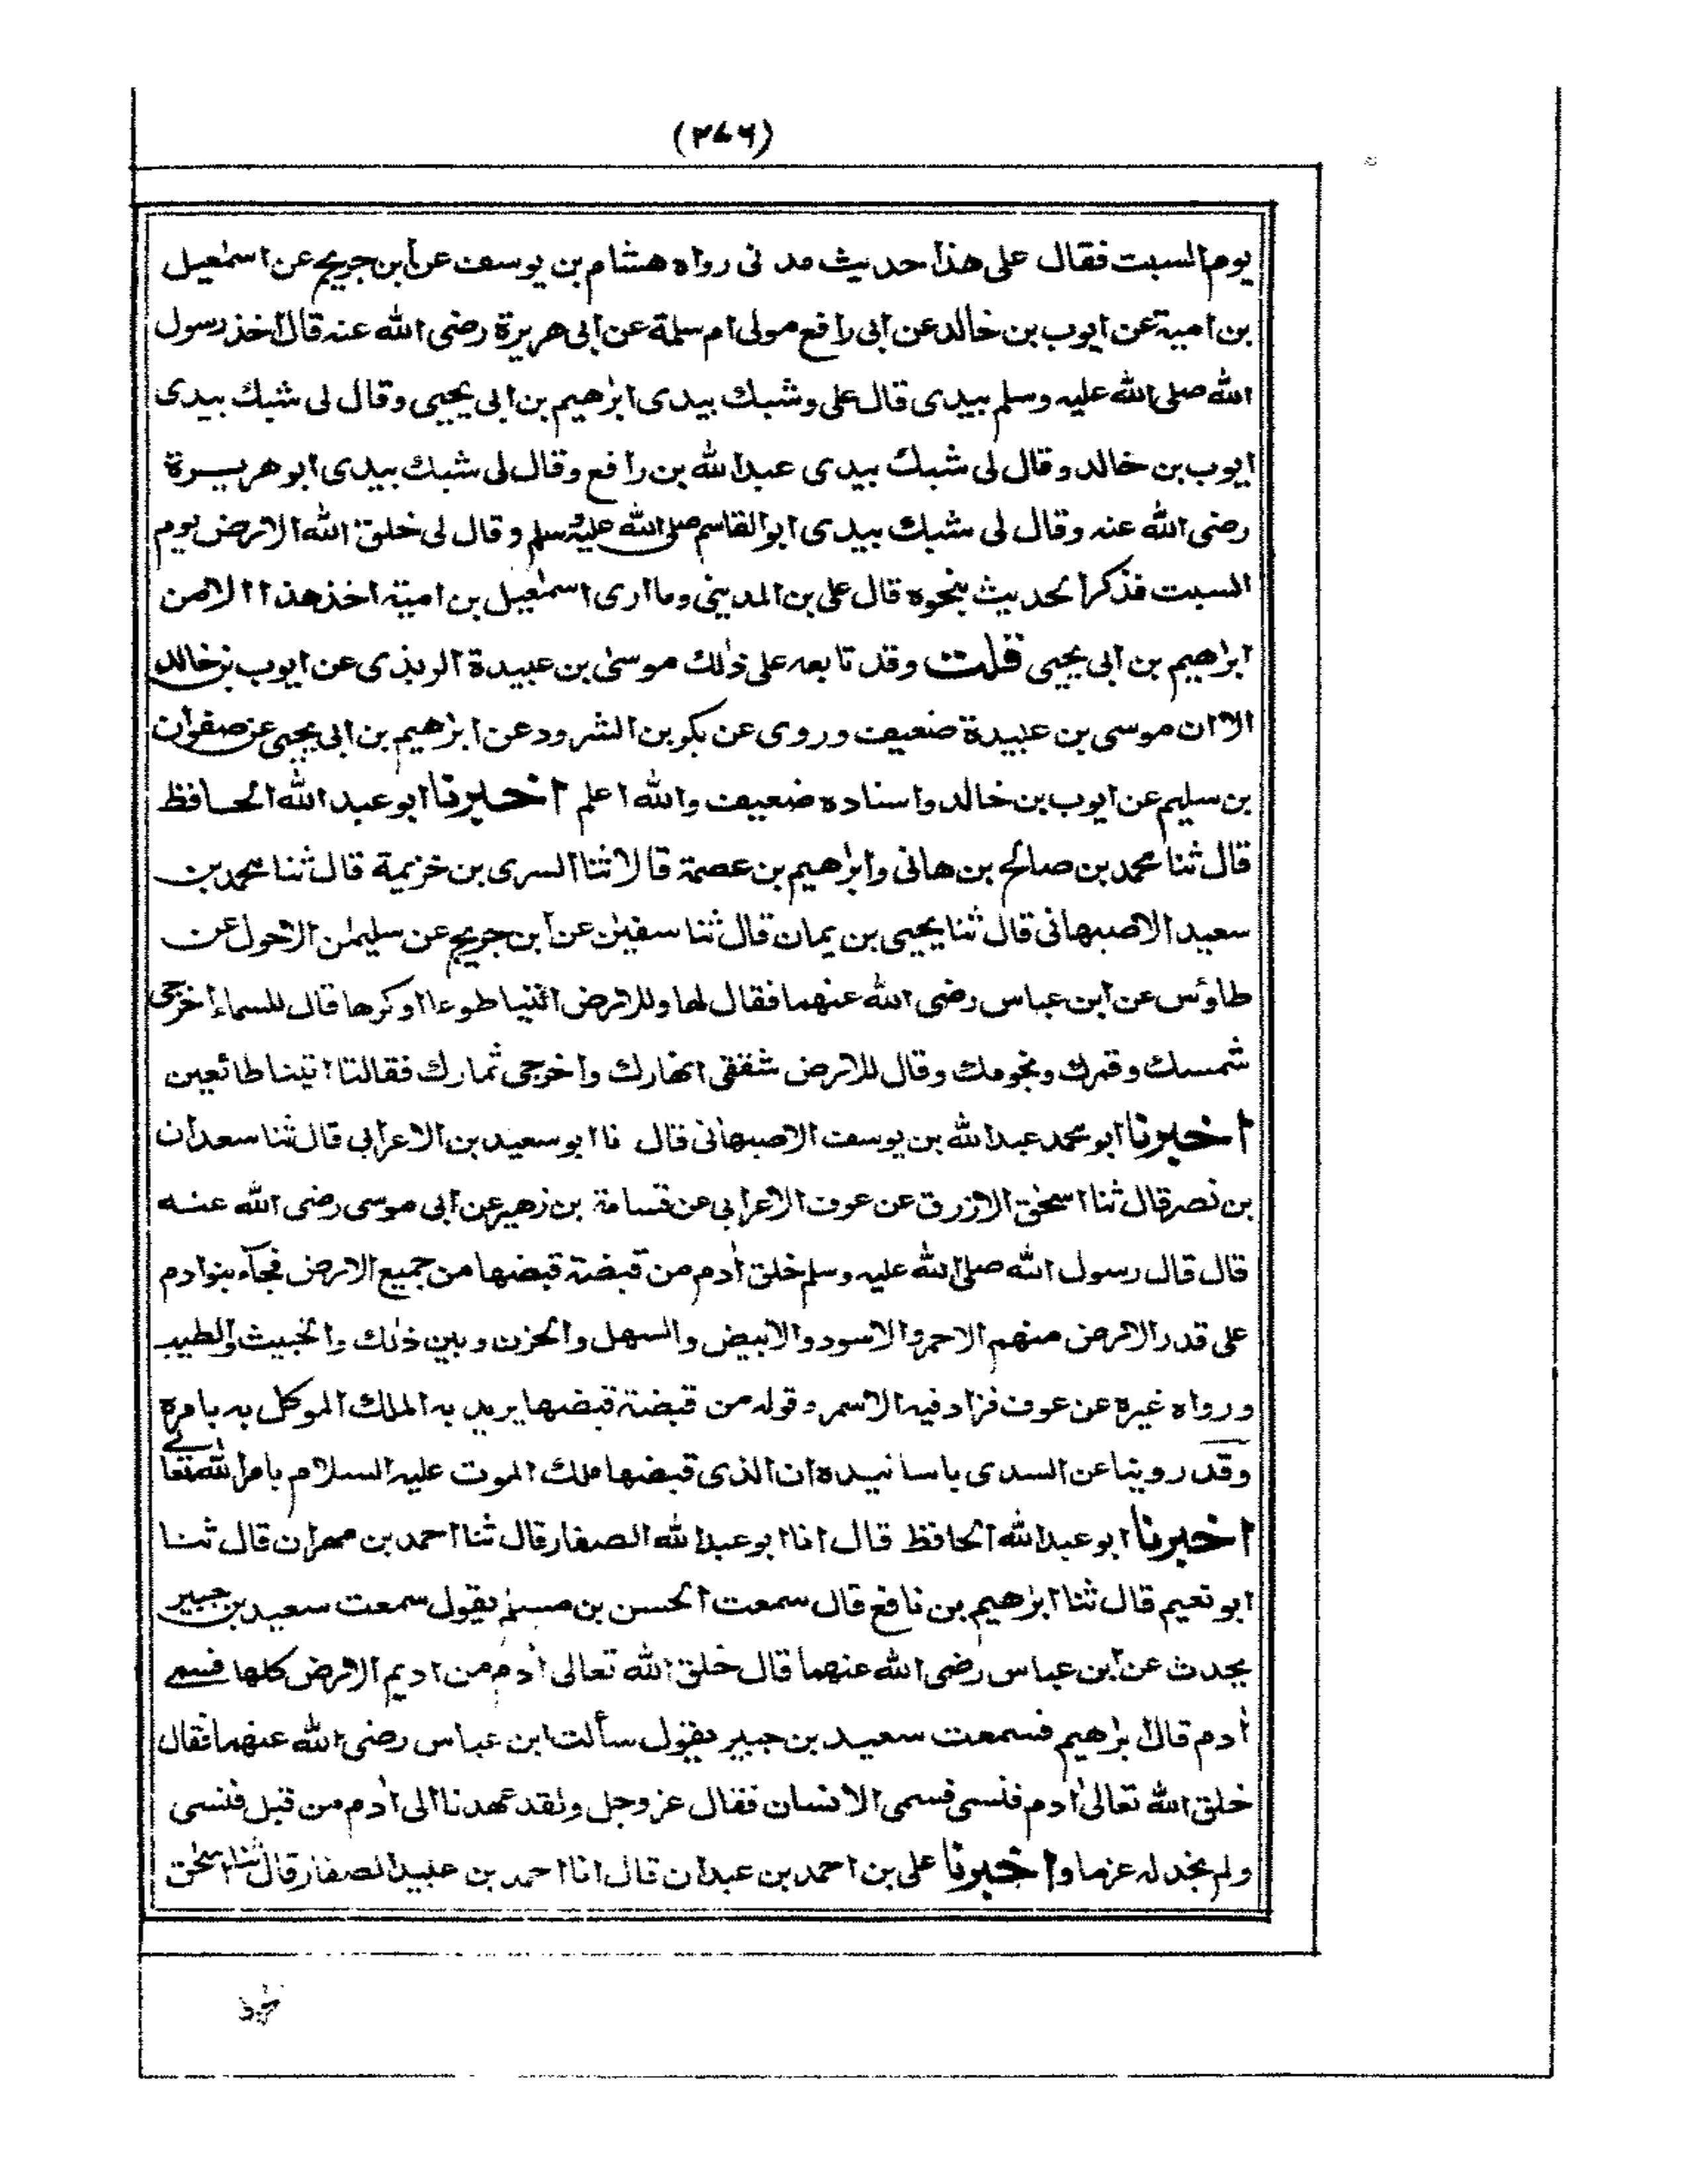 (۲۷۶)
يوم السبت فقال على هذا حديث مدنى رواه هشام بن يوسف عن ابن جريج عن اسمٰعيل
بن امية عن ايوب بن خالد عن ابى رافع مولى ام سلمة عن ابى هريرة رضى الله عنه قال اخذ رسول
الله صلى الله عليه وسلم بيدى قال على وشبك بيدى ابرٰهيم بن ابى يحيى وقال لى شبك بيدى
ايوب بن خالد وقال لى شبك بيدى عبدالله بن رافع وقال لى شبك بيدى ابو هريرة
رضى الله عنه وقال لى شبك بيدى ابوالقاسم صلى الله عليه وسلم وقال لى خلق الله الارض يوم
السبت فذكر الحديث بنحوه قال على بن المدينى وما ارى اسمٰعيل بن امية اخذ هذا الا من
ابرٰهيم بن ابى يحيى قلت وقد تابعه على ذٰلك موسىٰ بن عبيدة الربذى عن ايوب بن خالد
الا ان موسى بن عبيدة ضعيف وروى عن بكر بن الشرود عن ابرٰهيم بن ابى يحيى عن صفوان
بن سليم عن ايوب بن خالد واسناده ضعيف والله اعلم اخبرنا ابو عبد الله الحافظ
قال ثنا محمد بن صالح بن هانى وابرٰهيم بن عصمة قالا ثنا السرى بن خزيمة قال ثنا محمد بن
سعيد الاصبهانى قال ثنا يحيى بن يمان قال ثنا سفيٰن عن ابن جريج عن سليمٰن الاحول عن
طاؤس عن ابن عباس رضى الله عنهما فقال لها وللارض ائتيا طوعا اوكرها قال للسماء اخرجى
شمسك وقمرك ونجومك وقال للارض شققى انهارك واخرجى ثمارك فقالتا اتينا طائعين
اخبرنا ابو محمد عبدالله بن يوسف الاصبهانى قال نا ابو سعيد بن الاعرابى قال ثنا سعدان
بن نصر قال ثنا اسحٰق الازرق عن عوف الاعرابى عن قسامة بن زهير عن ابى موسى رضى الله عنه
قال قال رسول الله صلى الله عليه وسلم خلق اٰدم من قبضة قبضها من جميع الارض فجآء بنو ادم
على قدر الارض منهم الاحمر والاسود والابيض والسهل والحزن وبين ذٰلك والخبيث والطيب
ورواه غيره عن عوف فزاد فيه الاسمر وقوله من قبضة قبضها يريد به الملك الموكل به بامره
وقد روينا عن السدى باسانيده ان الذى قبضها ملك الموت عليه السلام بامر الله تعالى
اخبرنا ابو عبدالله الحافظ قال انا ابو عبدالله الصفار قال ثنا احمد بن مهران قال ثنا
ابو نعيم قال ثنا ابرٰهيم بن نافع قال سمعت الحسن بن مسلم يقول سمعت سعيد بن جبير
يحدث عن ابن عباس رضى الله عنهما قال خلق الله تعالى اٰدم من اديم الارض كلها فسمى
اٰدم قال ابرٰهيم فسمعت سعيد بن جبير يقول سألت ابن عباس رضى الله عنهما فقال
خلق الله تعالىٰ اٰدم فنسى فسمى الانسان فقال عزوجل ولقد عهدنا الى اٰدم من قبل فنسى
ولم نجد له عزما واخبرنا على بن احمد بن عبدان قال انا احمد بن عبيد الصفار قال ثنا اسحٰق